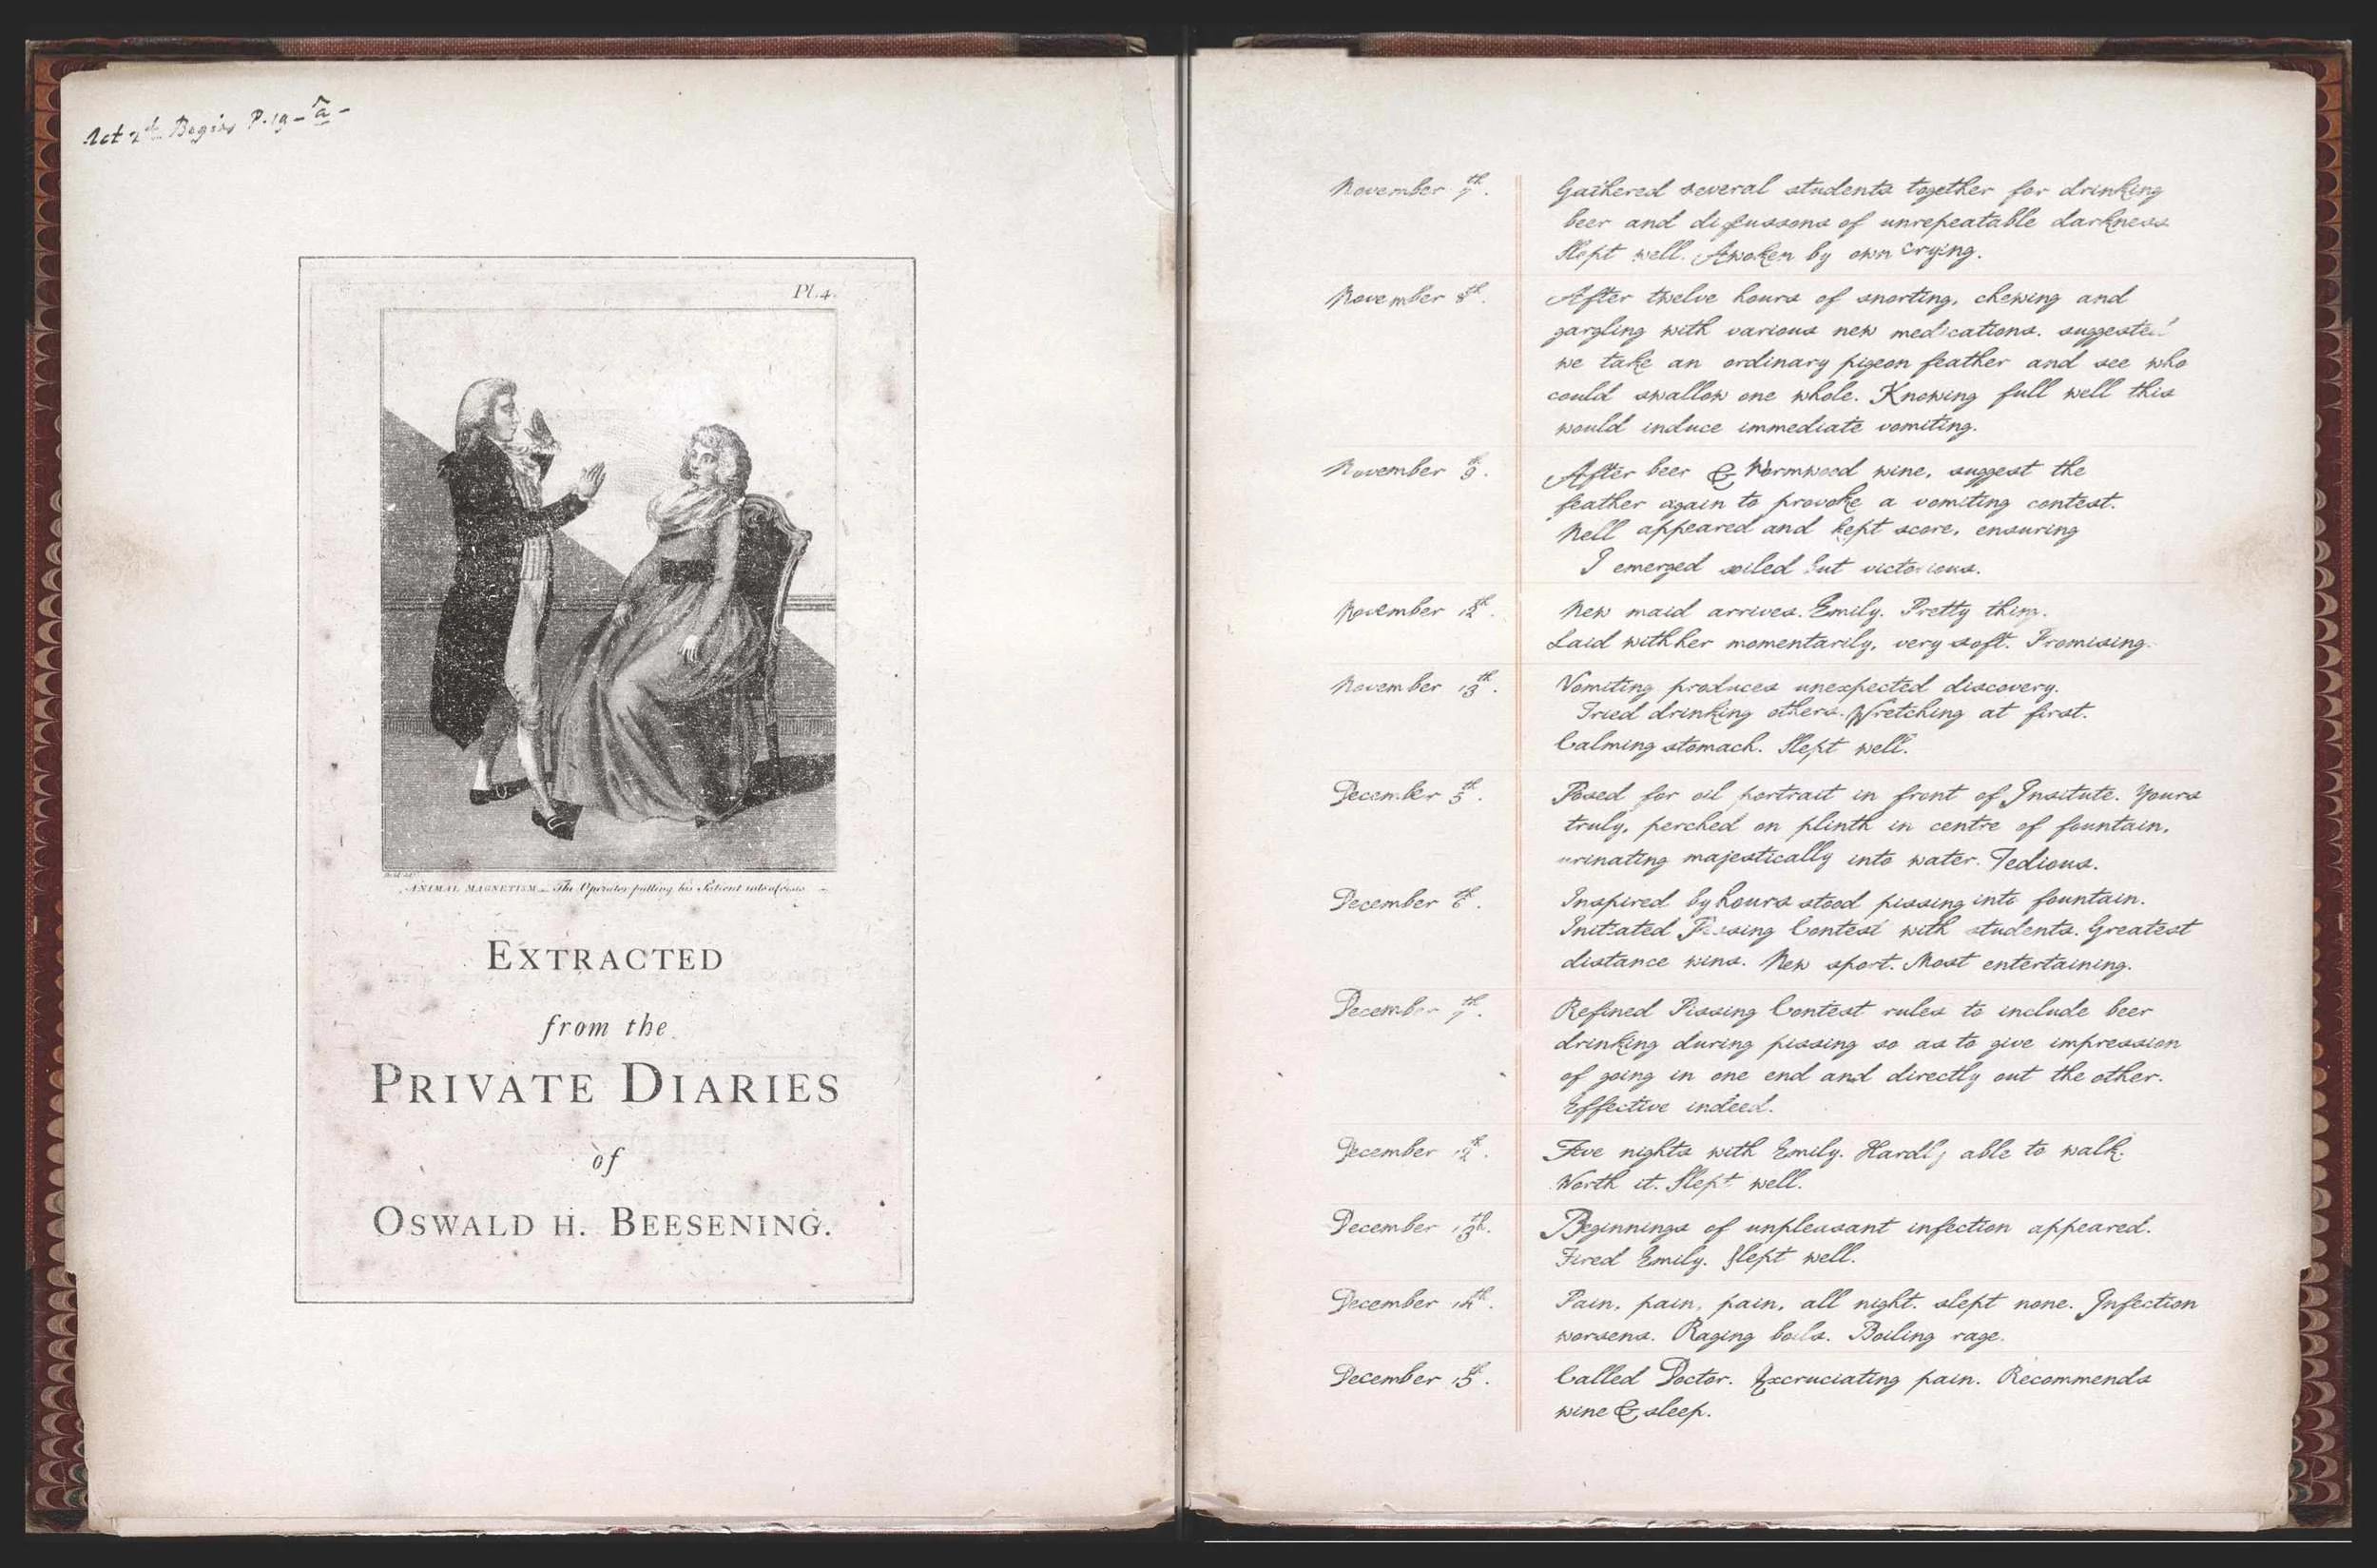 Act 2d Begins P. 19 - a -
Pl. 4.
ANIMAL MAGNETISM _ The Operator putting his Patient into a Crisis.
EXTRACTED
from the
PRIVATE DIARIES
of
OSWALD H. BEESENING.
November 7th. Gathered several students together for drinking
beer and discussons of unrepeatable darkness
Slept well. Awoken by own crying.
November 8th. After twelve hours of snorting, chewing and
gargling with various new medications. suggested
we take an ordinary pigeon feather and see who
could swallow one whole. Knowing full well this
would induce immediate vomiting.
November 9th. After beer & Wormwood wine, suggest the
feather again to provoke a vomiting contest.
Nell appeared and kept score, ensuring
I emerged soiled but victorious.
November 12th. New maid arrives. Emily. Pretty thing.
Laid with her momentarily, very soft. Promising.
November 13th. Vomiting produces unexpected discovery.
Tried drinking others. Wretching at first.
Calming stomach. Slept well.
December 5th. Posed for oil portrait in front of Insitute. Yours
truly, perched on plinth in centre of fountain,
urinating majestically into water. Tedious.
December 6th. Inspired by hours stood pissing into fountain.
Initiated Pissing Contest with students. Greatest
distance wins. New sport. Most entertaining.
December 7th. Refined Pissing Contest rules to include beer
drinking during pissing so as to give impression
of going in one end and directly out the other.
Effective indeed.
December 12th. Five nights with Emily. Hardly able to walk.
Worth it. Slept well.
December 13th. Beginnings of unpleasant infection appeared.
Fired Emily. Slept well.
December 14th. Pain, pain, pain, all night. slept none. Infection
worsens. Raging boils. Boiling rage.
December 15th. Called Doctor. Excruciating pain. Recommends
wine & sleep.